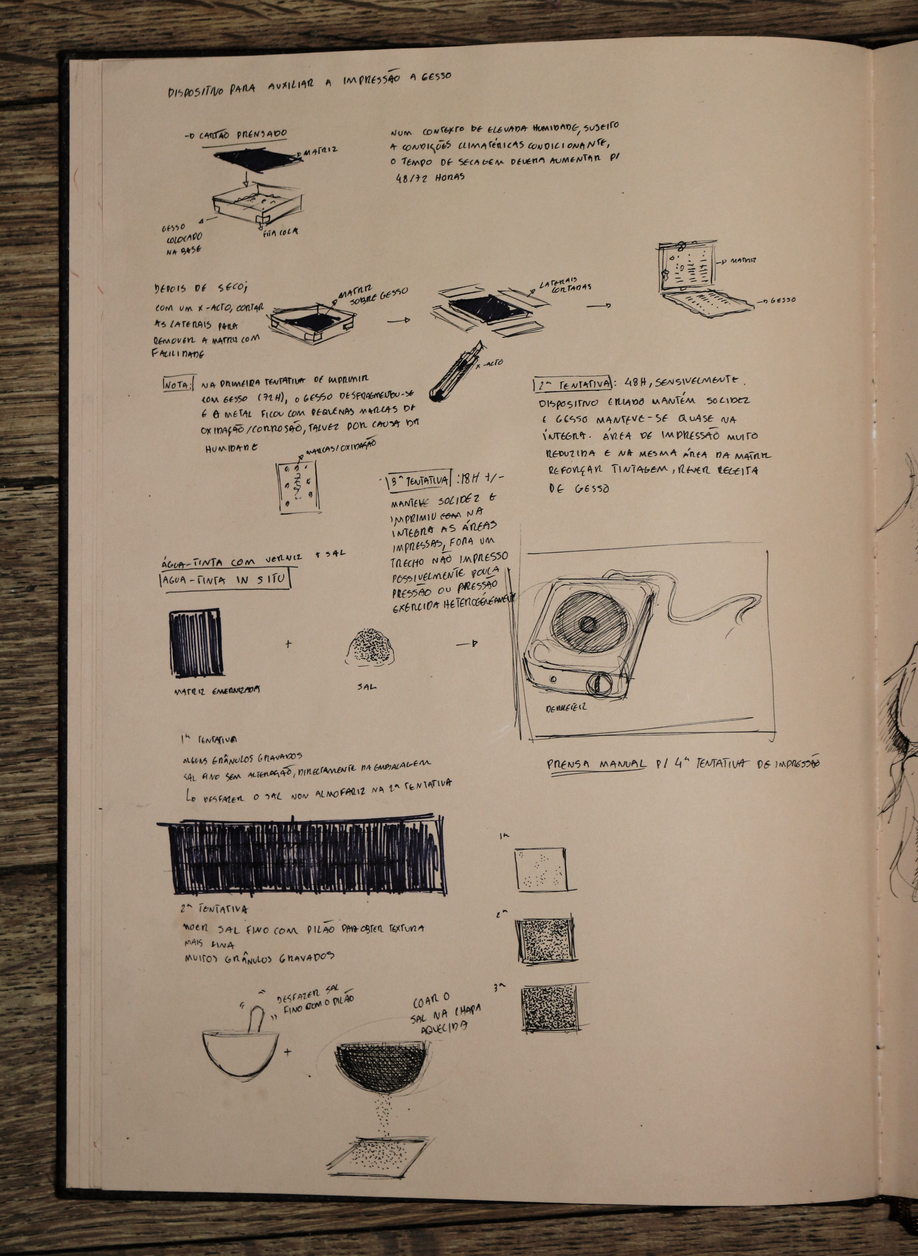 DISPOSITIVO PARA AUXILIAR A IMPRESSÃO A GESSO
→ CARTÃO PRENSADO
MATRIZ
GESSO
COLOCADO
NA BASE
FITA COLA
NUM CONTEXTO DE ELEVADA HUMIDADE, SUJEITO
A CONDIÇÕES CLIMATÉRICAS CONDICIONANTE,
O TEMPO DE SECAGEM DEVERÁ AUMENTAR P/
48/72 HORAS
DEPOIS DE SECO;
COM UM X-ACTO, CORTAR
AS LATERAIS PARA
REMOVER A MATRIZ COM
FACILIDADE
MATRIZ
SOBRE GESSO
LATERAIS
CORTADAS
X-ACTO
MATRIZ
GESSO
NOTA: NA PRIMEIRA TENTATIVA DE IMPRIMIR
COM GESSO (72H), O GESSO DESFRAGMENTOU-SE
E O METAL FICOU COM PEQUENAS MARCAS DE
OXIDAÇÃO/CORROSÃO, TALVEZ POR CAUSA DA
HUMIDADE
MARCAS/OXIDAÇÃO
2ª TENTATIVA: 48H, SENSIVELMENTE.
DISPOSITIVO CRIADO MANTÉM SOLIDEZ
E GESSO MANTEVE-SE QUASE NA
ÍNTEGRA. ÁREA DE IMPRESSÃO MUITO
REDUZIDA E NA MESMA ÁREA DA MATRIZ
REFORÇAR TINTAGEM, REVER RECEITA
DE GESSO
3ª TENTATIVA: 18H +/-
MANTEVE SOLIDEZ E
IMPRIMIU NA
INTEGRA AS ÁREAS
IMPRESSAS, FORA UM
TRECHO NÃO IMPRESSO
POSSIVELMENTE POUCA
PRESSÃO OU PRESSÃO
EXERCIDA HETEROGÉNEAMENTE
ÁGUA-TINTA COM VERNIZ + SAL
ÁGUA-TINTA IN SITU
MATRIZ ENVERNIZADA
+
SAL
DERRETER
PRENSA MANUAL P/ 4ª TENTATIVA DE IMPRESSÃO
1ª TENTATIVA
ALGUNS GRÂNULOS GRAVADOS
SAL FINO SEM ALTERAÇÃO, DIRECTAMENTE DA EMBALAGEM
↳ DESFAZER O SAL NUM ALMOFARIZ NA 2ª TENTATIVA
2ª TENTATIVA
MOER SAL FINO COM PILÃO PARA OBTER TEXTURA
MAIS FINA
MUITOS GRÂNULOS GRAVADOS
1ª
2ª
3ª
DESFAZER SAL
FINO COM O PILÃO
+
COAR O
SAL NA CHAPA
AQUECIDA